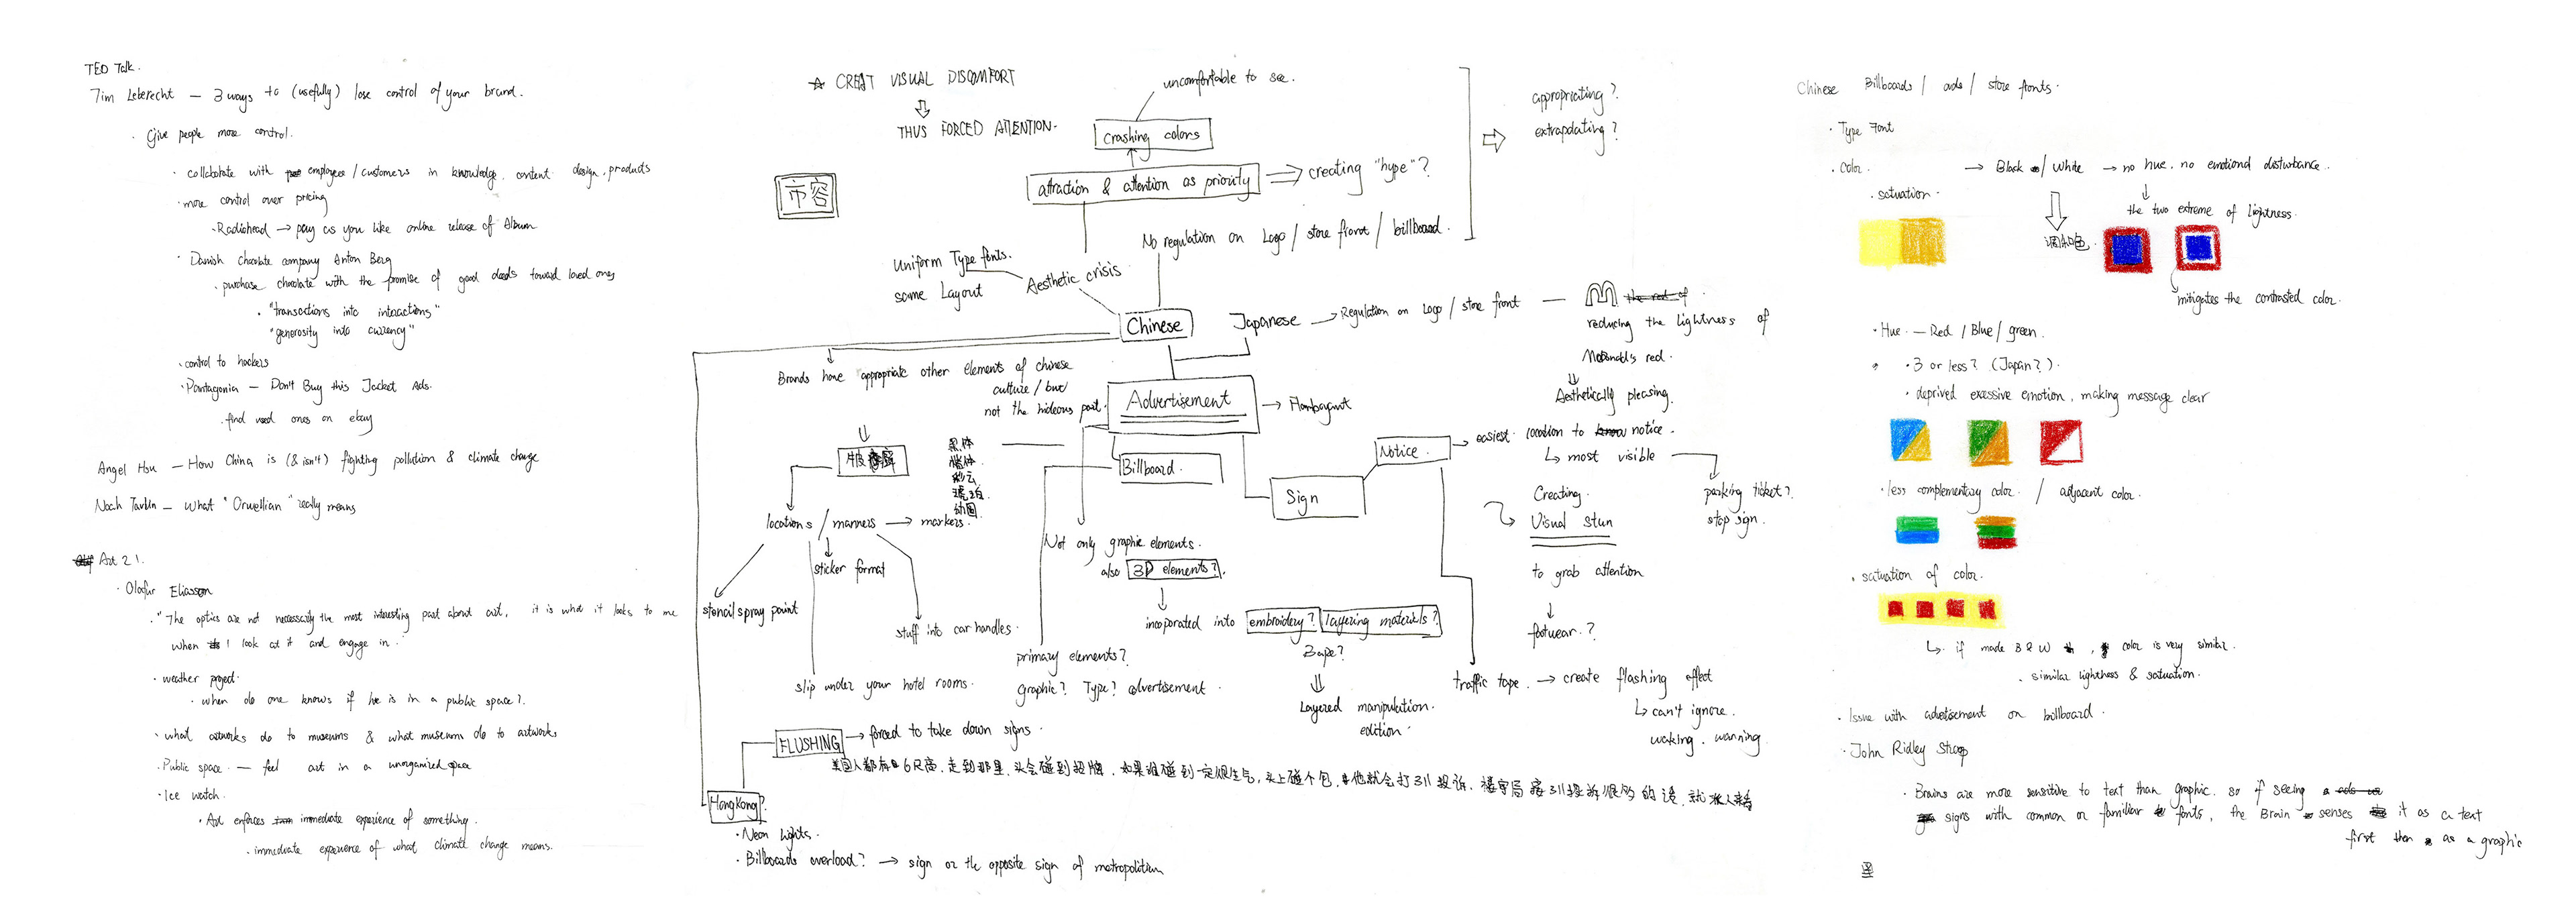 TED Talk.
Tim Leberecht — 3 ways to (usefully) lose control of your brand.
· Give people more control.
· collaborate with employees / customers in knowledge. content design, products
· more control over pricing
· Radiohead → pay as you like online release of Album
· Danish chocolate company Anton Berg
· purchase chocolate with the promise of good deeds toward loved ones
· "transactions into interactions"
"generosity into currency"
· control to hackers
· Pantagonia — Don't Buy this Jacket Ads.
· find used ones on ebay
Angel Hsu — How China is (& isn't) fighting pollution & climate change
Noah Tavlin — what "Orwellian" really means
Art 21.
· Olafur Eliasson
· "The optics are not necessarily the most interesting part about art, it is what it looks to me
when I look at it and engage in."
· weather project.
· when do one knows if he is in a public space?
· what artworks do to museums & what museums do to artworks
· Public space — feel art in a unorganized space
· Ice watch.
· Art enforces immediate experience of something.
· immediate experience of what climate change means.
☆ CREAT VISUAL DISCOMFORT
THUS FORCED ATTENTION.
市容
uncomfortable to see.
crashing colors
attraction & attention as priority
creating "hype"?
appropriating?
extrapolating?
No regulation on Logo / store front / billboard.
Uniform Type fonts.
same Layout
Aesthetic crisis
Chinese
Japanese → Regulation on Logo / store front — the red of
reducing the lightness of
McDonald's red.
Aesthetically pleasing.
Brands have appropriate other elements of chinese
culture / but
not the hideous part.
Advertisement → Flamboyant
牛皮癣
黑体
楷体
彩云
琥珀
幼圆
locations / manners → markers.
stencil spray paint
sticker format
stuff into car handles.
slip under your hotel rooms.
Billboard.
Sign
Notice.
easiest location to notice.
↳ most visible
parking ticket?
stop sign.
Creating
Visual stun
to grab attention
footwear.?
Not only graphic elements.
also 3D elements?
incoporated into embroidery? layering materials?
Bape?
Layered manipulation.
edition
primary elements?
graphic? Type? advertisement
traffic tape. → create flashing effect
↳ can't ignore.
waking. warning.
FLUSHING → forced to take down signs.
美国人都有6尺高，走到那里，头会碰到招牌，如果谁碰到一定很生气，头上碰个包，他就会打311投诉，楼宇局接311投诉很多的话，就派人来
HongKong?
· Neon Lights.
· Billboards overload? → sign or the opposite sign of metropolitian
Chinese Billboards / ads / store fronts.
· Type Font
· Color.
→ Black / White → no hue. no emotional disturbance.
· satuation.
the two extreme of lightness.
调和色.
mitigates the contrasted color.
· Hue — Red / Blue / green.
· 3 or less? (Japan?).
· deprived excessive emotion, making message clear
· less complementary color. / adjacent color.
· satuation of color.
↳ if made B & W, color is very similar.
· similar lightness & satuation.
· Issue with advertisement on billboard.
· John Ridley Stroop
· Brains are more sensitive to text than graphic. so if seeing a
signs with common or familiar fonts, the Brain senses it as a text
first then as a graphic